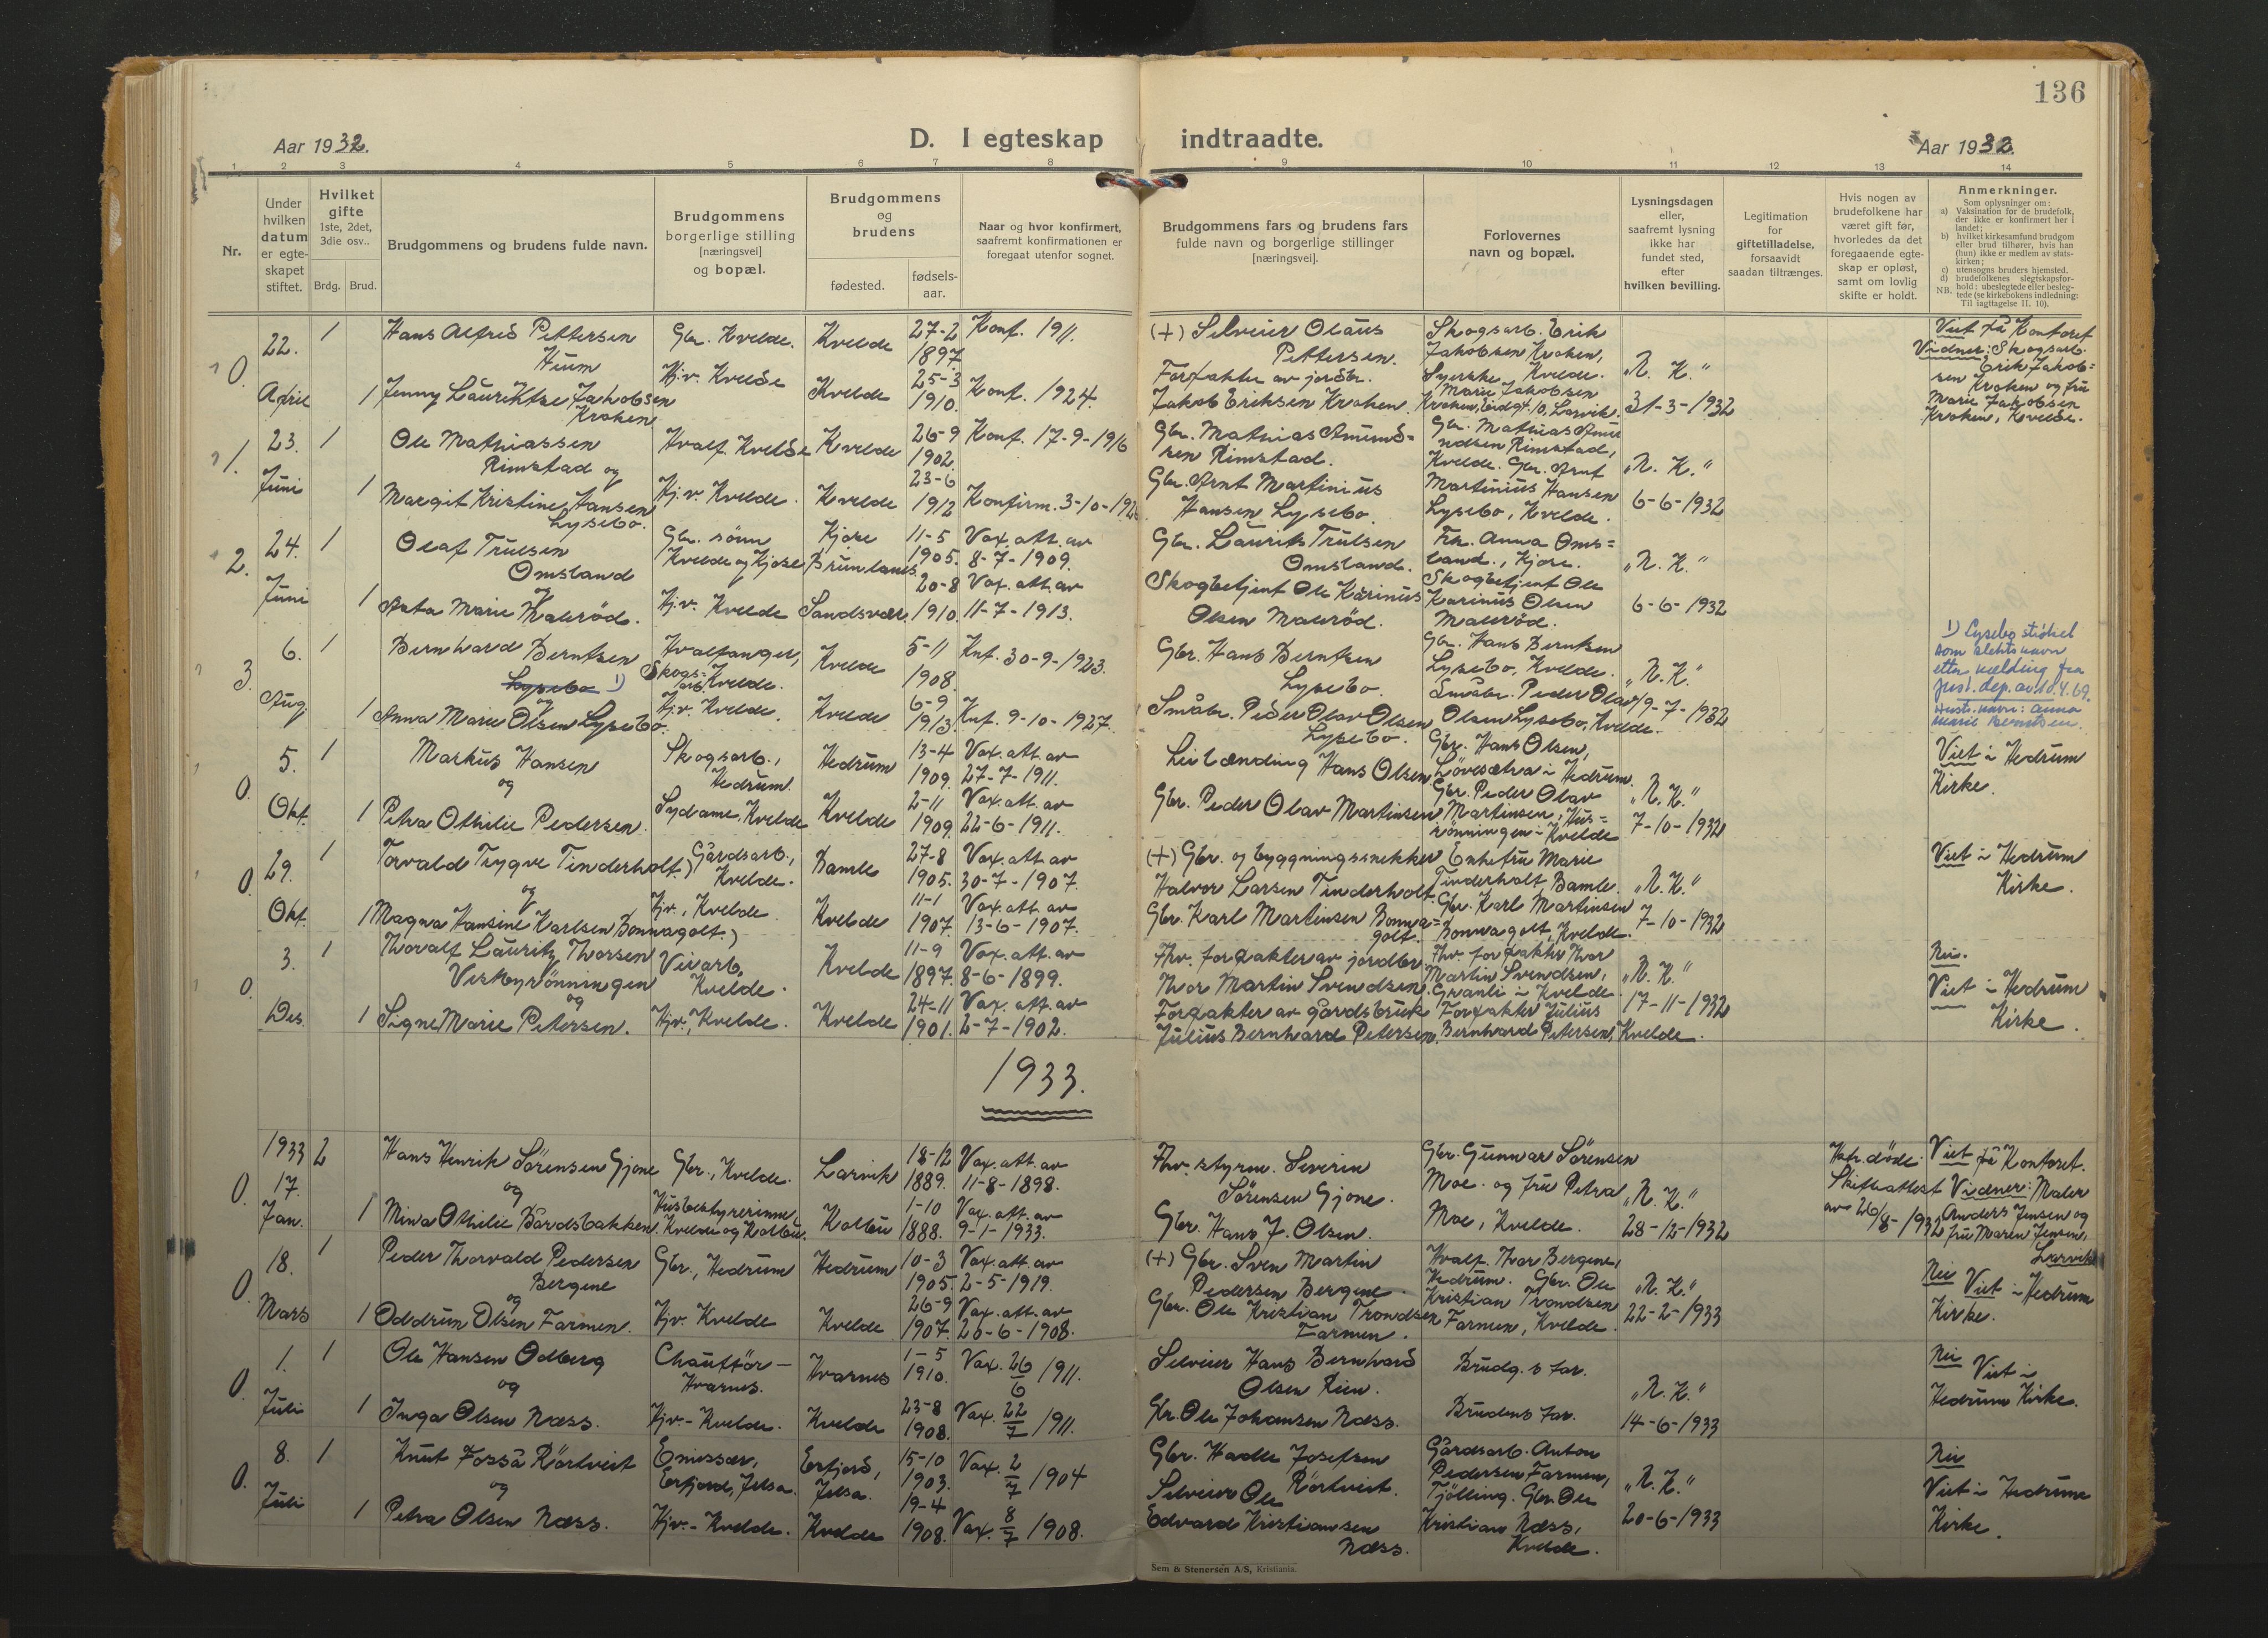 136
Aar 1932.
D. I egteskap indtraadte.
Aar 1932.
1 2 3 4 5 6 7 8 9 10 11 12 13 14
Nr.
Under
hvilken
datum
er egte-
skapet
stiftet.
Hvilket
gifte
1ste, 2det,
3die osv..
Brdg. Brud.
Brudgommens og brudens fulde navn.
Brudgommens
borgerlige stilling
[næringsvei]
og bopæl.
Brudgommens
og
brudens
fødested.
fødsels-
aar.
Naar og hvor konfirmert,
saafremt konfirmationen er
foregaat utenfor sognet.
Brudgommens fars og brudens fars
fulde navn og borgerlige stillinger
[næringsvei].
Forlovernes
navn og bopæl.
Lysningsdagen
eller,
saafremt lysning
ikke har
fundet sted,
efter
hvilken bevilling.
Legitimation
for
giftetilladelse,
forsaavidt
saadan tiltrænges.
Hvis nogen av
brudefolkene har
været gift før,
hvorledes da det
foregaaende egte-
skap er opløst,
samt om lovlig
skifte er holdt.
Anmerkninger.
Som oplysninger om:
a) Vaksination for de brudefolk,
der ikke er konfirmert her i
landet;
b) hvilket kirkesamfund brudgom
eller brud tilhører, hvis han
(hun) ikke er medlem av stats-
kirken;
c) utensogns bruders hjemsted.
d) brudefolkenes slegtskapsfor-
hold: ubeslegtede eller besleg-
tede (se kirkebokens indledning:
NB. Til iagttagelse II. 10).
0.
22.
April
1
Hans Alfred Pettersen
Hium
Gbr. Kvelde.
Kvelde
27-2
1897.
Konf. 1911.
(+) Selveier Olaus
Pettersen.
Skogsarb. Erik
Jakobsen Kroken,
1 Jenny Laurentze Jakobsen
Kroken
Hj.v. Kvelde
Kvelde
25-3
1910.
Konf. 1924.
Forpakter av jordbr.
Jakob Eriksen Kroken.
Syerske Kvelde.
Marie Jakobsen
Kroken, Larvik.
"N. K."
31-3-1932
Viet på Kontoret
Vidner: Skogsarb.
Erik Jakob=
sen Kroken og fru
Marie Jakobsen
Kroken, Kvelde.
1.
23.
Juni
1
Ole Mathiassen
Rimstad og
Hvalf. Kvelde
Kvelde
26-9
1902.
Konf. 17-9-1916
Gbr. Mathias Amund=
sen Rimstad.
Gbr. Mathias Amu
ndsen Rimstad,
Kvelde. Gbr. Arnt
1 Margit Kristine Hansen
Lysebo.
Hj.v. Kvelde.
Kvelde
23-6
1912
Konfirm. 3-10-1926
Gbr. Arnt Martinius
Hansen Lysebo.
Martinius Hansen
Lysebo, Kvelde.
"N. K."
6-6-1932
2.
24.
Juni
1
Olaf Trulsen
Omsland
og
Gbr. sønn
Kvelde og Kjose
Kjose
Brunlanes
11-5
1905.
Vax. att. av
8-7-1909.
Gbr. Laurits Trulsen
Omsland.
Frk. Anna Oms=
land., Kjose.
1 Asta Marie Maurød.
Hj.v. Kvelde
Sandsvær
20-8
1910.
Vax. att. av
11-7-1913.
Skogbetjent Ole Karinus
Olsen Maurød.
Skogbetjent Ole
Karinus Olsen
Maurød.
"N. K."
6-6-1932
3.
6.
Aug.
1
Bernhard Berntsen
Lysebo 1)
og
Hvalfanger,
Skogs=
arb. Kvelde.
Kvelde
5-11
1908.
Knf. 30-9-1923.
Gbr. Hans Berntsen
Lysebo.
Gbr. Hans Berntsen
Lysebo, Kvelde.
1 Anna Marie Olsen Lysebo.
Hj.v. Kvelde.
Kvelde
6-9
1913.
Knf. 9-10-1927.
Småbr. Peder Olav Olsen
Lysebo.
Småbr. Peder Olav
Olsen Lysebo, Kvelde.
"N. K."
19-7-1932
1) Lysebo strøket
som slektsnavn
etter melding fra
Just. dep. av 10.4.69.
Hustr. navn: Anna
Marie Berntsen.
0.
5.
Okt.
1
Markus Hansen
og
Skogsarb.,
Hedrum.
Hedrum
13-4
1909.
Vax. att. av
27-7-1911.
Leilænding Hans Olsen
Gbr. Hans Olsen,
Løvesætra i Hedrum.
1 Petra Othilie Pedersen.
Sydame, Kvelde
Kvelde
2-11
1909.
Vax. att. av
22-6-1911.
Gbr. Peder Olav Martinsen
Gbr. Peder Olav
Martinsen, Hus=
rønningen i Kvelde
"N. K."
7-10-1932
Viet i Hedrum
Kirke.
0.
29.
Okt.
1
Torvald Trygve Tinderholt.)
og
Gårdsarb.,
Kvelde.
Bamle
27-8
1905.
Vax. att. av
30-7-1907.
(+) Gbr. og byggningssnekker
Halvor Larsen Tinderholt.
Enkefru Marie
Tinderholt, Bamle.
1 Magna Hansine Karlsen Bonnagolt.)
Hjv., Kvelde
Kvelde
11-1
1907.
Vax. att. av
13-6-1907.
Gbr. Karl Martinsen Bonna=
golt.
Gbr. Karl Martinsen
Bonnagolt, Kvelde.
"N. K."
7-10-1932
Viet i Hedrum
Kirke.
0.
3.
Des.
1
Thoralf Lauritz Thorsen
Vestbyrønningen
og
Veiarb.
Kvelde.
Kvelde
11-9
1897.
Vax. att. av
8-6-1899.
Fhv. forpakter av jordbr.
Thor Martin Svendsen.
Fhv. forpakter Thor
Martin Svendsen,
Granli i Kvelde
1 Signe Marie Petersen.
Hjv., Kvelde.
Kvelde
24-11
1901.
Vax. att. av
2-7-1902.
Forpakter av gårdsbruk
Julius Bernhard Petersen.
Forpakter Julius
Bernhard Petersen, Kvelde.
"N. K."
17-11-1932
Nei.
Viet i Hedrum
Kirke.
1933.
0.
1933
17.
Jan.
2
Hans Henrik Sørensen Gjone
og
Gbr., Kvelde.
Larvik
18-12
1889.
Vax. att. av
11-8-1898.
Fhv. styrm. Severin
Sørensen Gjone.
Gbr. Gunnar Sørensen
Moe. og fru Petra
1 Mina Othilie Bårdsbakken.
Husbestyrerinne,
Kvelde og Kolbu.
Kolbu
1-10
1888.
Vax. att. av
9-1-1933.
Gbr. Hans J. Olsen.
Moe, Kvelde.
"N. K."
28-12-1932
døde.
Skifteattest
av 26/8-1932
Viet på Kontoret.
Vidner: Maler
Anders Jensen og
fru Maren Jensen,
Larvik
0.
18.
Mars
1
Peder Thorvald Pedersen
Bergene
og
Gbr., Hedrum
Hedrum
10-3
1905.
Vax. att. av
2-5-1919.
(+) Gbr. Sven Martin
Pedersen Bergene.
Hvalf. Thor Bergene,
Hedrum. Gbr. Ole
1 Oddrun Olsen Farmen.
Hjv. Kvelde
Kvelde
26-9
1907.
Vax. att. av
26-6-1908.
Gbr. Ole Kristian Trondsen
Farmen.
Kristian Trondsen
Farmen, Kvelde.
"N. K."
22-2-1933
Nei
Viet i Hedrum
Kirke.
0.
1.
Juli
1
Ole Hansen Odberg
og
Chauffør -
Hvarnes.
Hvarnes
1-5
1910.
Vax. 26/6 1911.
Selveier Hans Bernhard
Olsen Rien.
Brudg.s far.
1 Inga Olsen Næss.
Hjv. - Kvelde.
Kvelde
23-8
1908.
Vax. 22/7 1911.
Gbr. Ole Johansen Næss.
Brudens far.
"N. K."
14-6-1933
Nei
Viet i
Hedrum Kirke.
0.
8.
Juli
1
Knut Fosså Rörtveit
og
Emissær,
Erfjord, Jelsa.
Erfjord,
Jelsa.
15-10
1903.
Vax. 2/7 1904
Gbr. Hadle Josefsen
Rörtveit.
Gårdsarb. Anton
Pedersen Farmen,
Tjölling. Gbr. Ole
1 Petra Olsen Næss.
Hjv. - Kvelde.
Kvelde
19-4
1908.
Vax. 8/7 1908.
Selveier Ole
Edvard Kristiansen
Næss.
Kristian Næss,
Kvelde.
"N. K."
20-6-1933
Nei
Viet i Hedrum
Kirke.
Sem & Stenersen A/S, Kristiania.